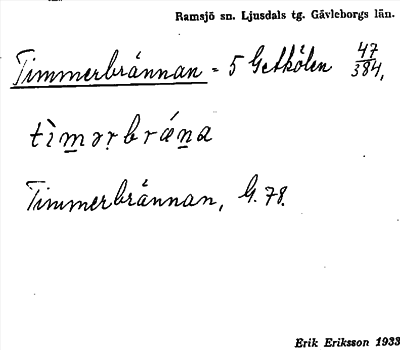 Ramsjö sn. Ljusdals tg. Gävleborgs län.
Timmerbrännan = 5 Getkölen 47/384,
tìm̲ər̥brǽn̲a
Timmerbrännan, G. 78.
Erik Eriksson 1933